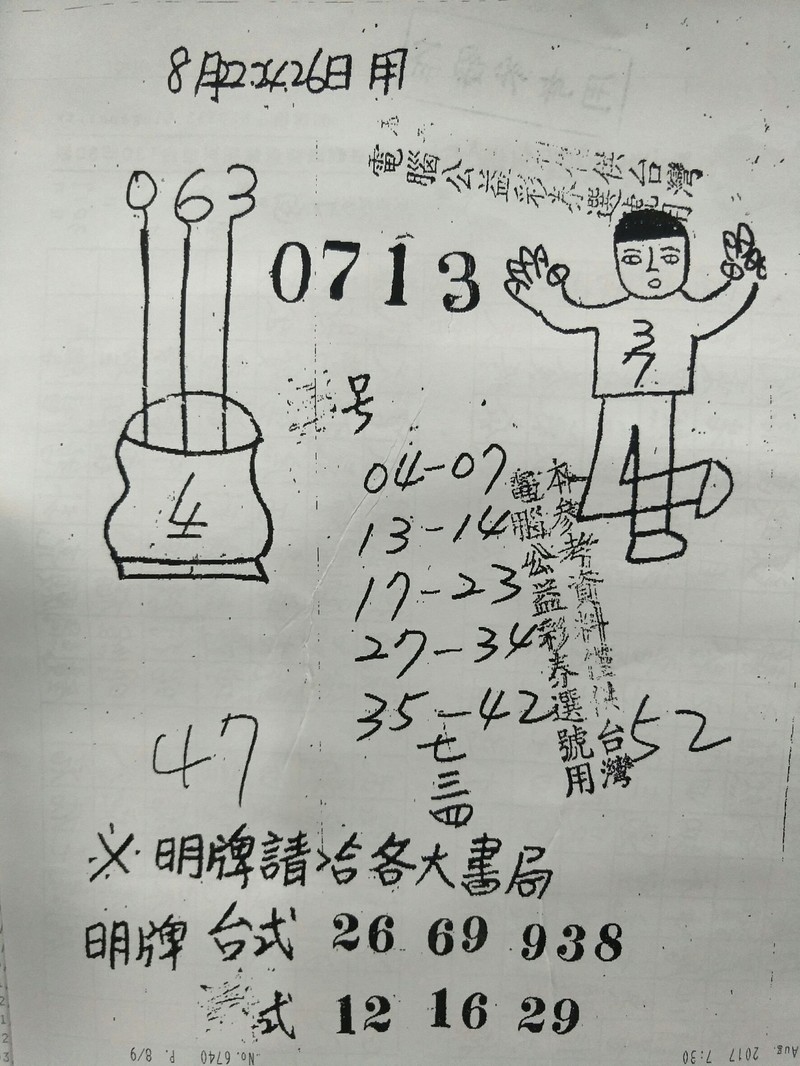 8月22 24 26日用
電腦公益彩券選號用
供台灣
0 6 3
0713
3
7
号
04-07
4
13-14
17-23
27-34
35-42
本參考資料僅供台灣
電腦公益彩券選號用
47
52
七
三
四
※明牌請洽各大書局
明牌 台式 26 69 938
式 12 16 29
No.6740 P. 8/9
Aug. 2017 7:30